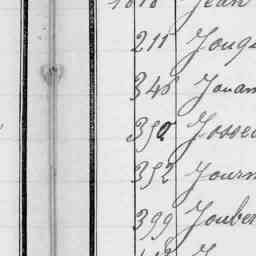 Jean
211 Jouge
340 Jouan
350 Josse
352 Journ
399 Jouber